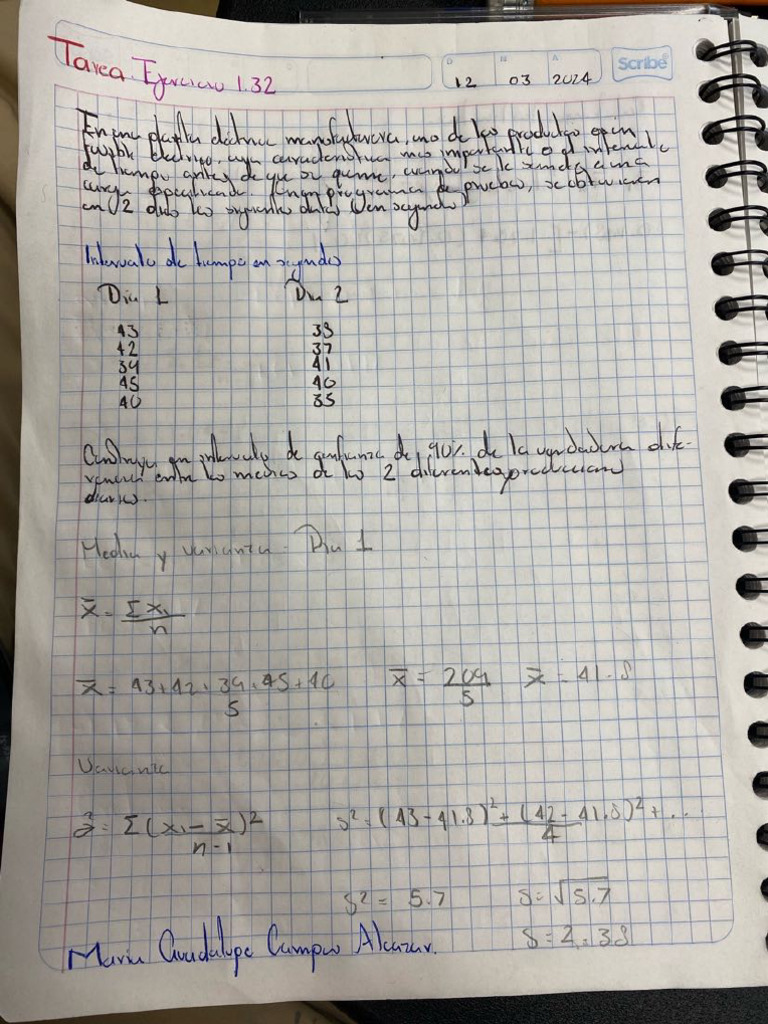 Tarea. Ejercicio 1.32
D M A
12 03 2024
Scribe
En una planta manufacturera, uno de los productos es un
fusible eléctrico, cuya característica más importante es el intervalo
de tiempo antes de que se queme, cuando se le somete a una
carga especificada. En un programa de pruebas, se obtuvieron
en 2 días los siguientes datos (en segundo)
Intervalo de tiempo en segundos
Día 1 Día 2
43 38
42 37
39 41
45 40
40 35
Construya un intervalo de confianza de 90% de la verdadera dife-
rencia entre las medias de los 2 diferentes producciones
diarias.
Media y varianza - Día 1
x̄ = Σxi / n
x̄ = 43+42+39+45+40 / 5 x̄ = 209 / 5 x̄ = 41.8
Varianza
= Σ(xi - x̄)² / n-1 s² = (43-41.8)² + (42-41.8)² + ... / 4
s² = 5.7 s = √5.7
s = 2.38
Maria Guadalupe Campos Alcazar.